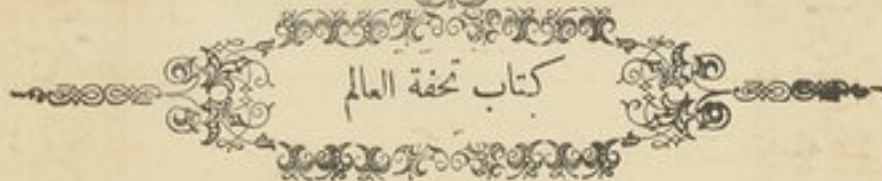 كتاب تحفة العالم